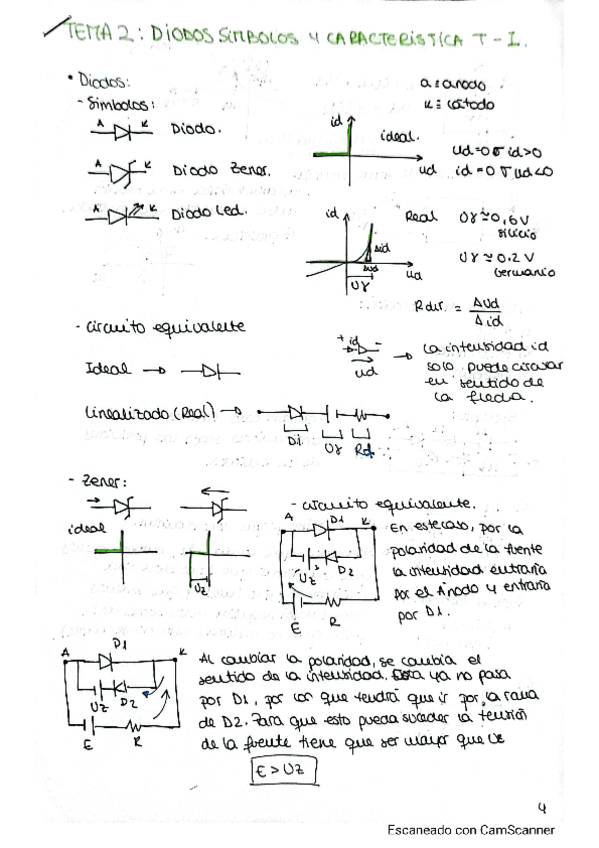 TEMA 2: DIODOS SIMBOLOS Y CARACTERISTICA T-I.
• Diodos:
a ≡ anodo
- Simbolos:
k ≡ cátodo
A K Diodo.
id ideal.
ud=0 σ id>0
A K Diodo Zener.
ud id=0 σ ud<0
A K Diodo Led.
id Real Uγ≃0,6V
silicio
Δid
Uγ≃0.2V
Δud ud
Germanio
Uγ
Rdir. = Δud / Δid
- circuito equivalente
+ id -
ud
→ La intensidad id
solo puede circular
en sentido de
la flecha.
Ideal →
Linealizado (Real) →
Di Uγ Rd
- Zener:
ideal
Uz
- circuito equivalente.
A D1 K
D2
Uz
E R
En este caso, por la
polaridad de la fuente
la intensidad entraria
por el Ánodo y entraria
por D1.
A D1 K
Uz D2
E R
Al cambiar la polaridad, se cambia el
sentido de la intensidad. Esta ya no pasa
por D1, por lo que tendrá que ir por la rama
de D2. Para que esto pueda suceder la tensión
de la fuente tiene que ser mayor que Uz
E > Uz
4
Escaneado con CamScanner